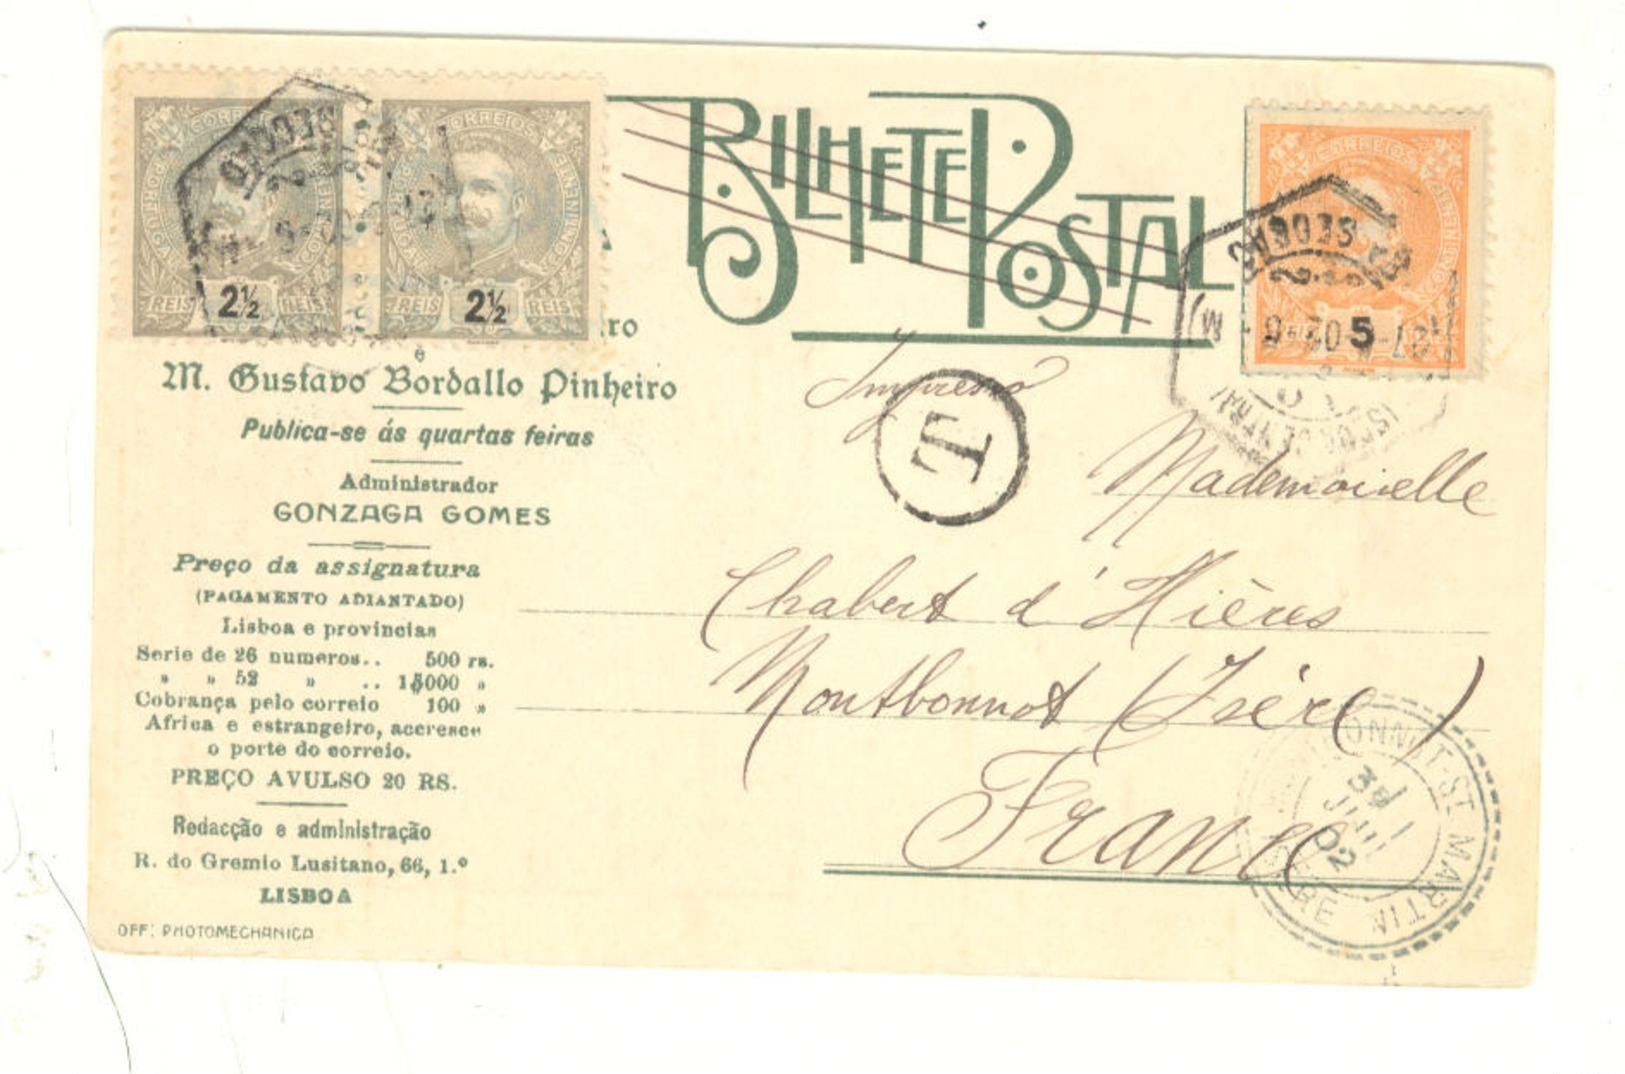 CORREIOS
REIS 2½ REIS
CORREIOS
REIS 2½ REIS
BILHETE POSTAL
CORREIOS
5
2.ª SECÇÃO
2.ª SECÇÃO
ro
e
M. Gustavo Bordallo Pinheiro
Publica-se ás quartas feiras
Administrador
GONZAGA GOMES
Preço da assignatura
(PAGAMENTO ADIANTADO)
Lisboa e provincias
Serie de 26 numeros.. 500 rs.
» » 52 » .. 1$000 »
Cobrança pelo correio 100 »
Africa e estrangeiro, accresce
o porte do correio.
PREÇO AVULSO 20 RS.
Redacção e administração
R. do Gremio Lusitano, 66, 1.º
LISBOA
OFF: PHOTOMECHANICA
Impresso
T
Mademoiselle
Chabert d'Hières
Montbonnot (Isère)
France
MONTBONNOT-ST-MARTIN
ISERE
02